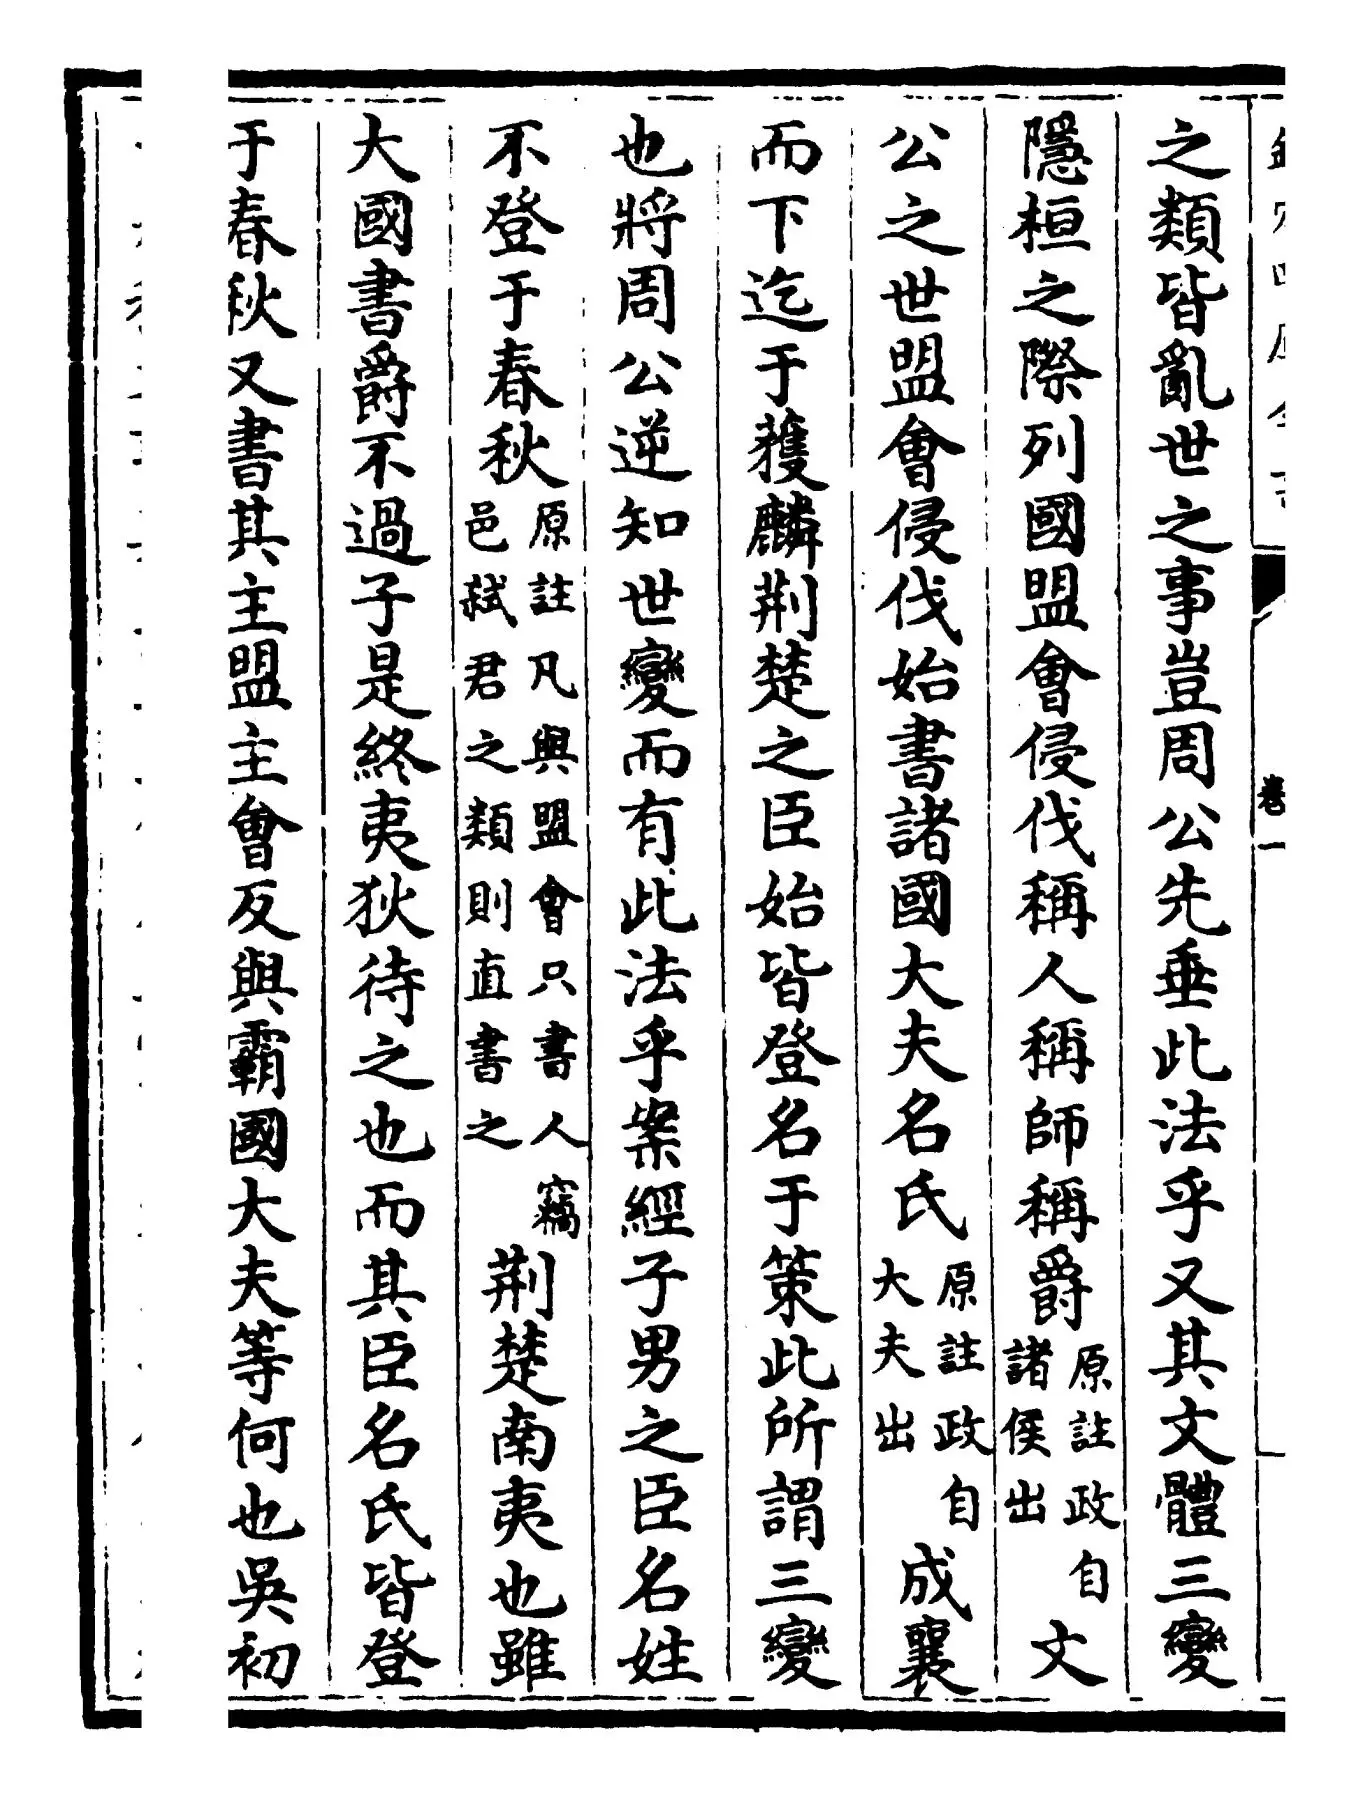 之類皆亂世之事豈周公先垂此法乎又其文體三變
隱桓之際列國盟會侵伐稱人稱師稱爵原註政自諸侯出文
公之世盟會侵伐始書諸國大夫名氏原註政自大夫出成襄
而下迄于獲麟荆楚之臣始皆登名于策此所謂三變
也將周公逆知世變而有此法乎案經子男之臣名姓
不登于春秋原註凡與盟會只書人竊邑弑君之類則直書之荆楚南夷也雖
大國書爵不過子是終夷狄待之也而其臣名氏皆登
于春秋又書其主盟主會反與霸國大夫等何也吳初
卷一